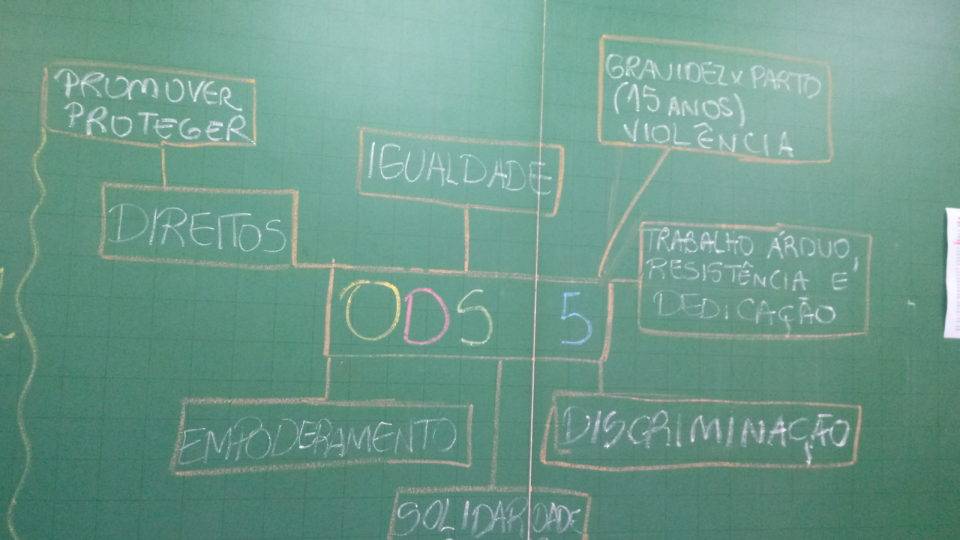 PROMOVER
PROTEGER
GRAVIDEZ x PARTO
(15 ANOS)
VIOLÊNCIA
IGUALDADE
DIREITOS
TRABALHO ÁRDUO,
RESISTÊNCIA E
DEDICAÇÃO
ODS 5
EMPODERAMENTO
DISCRIMINAÇÃO
SOLIDARIDADE